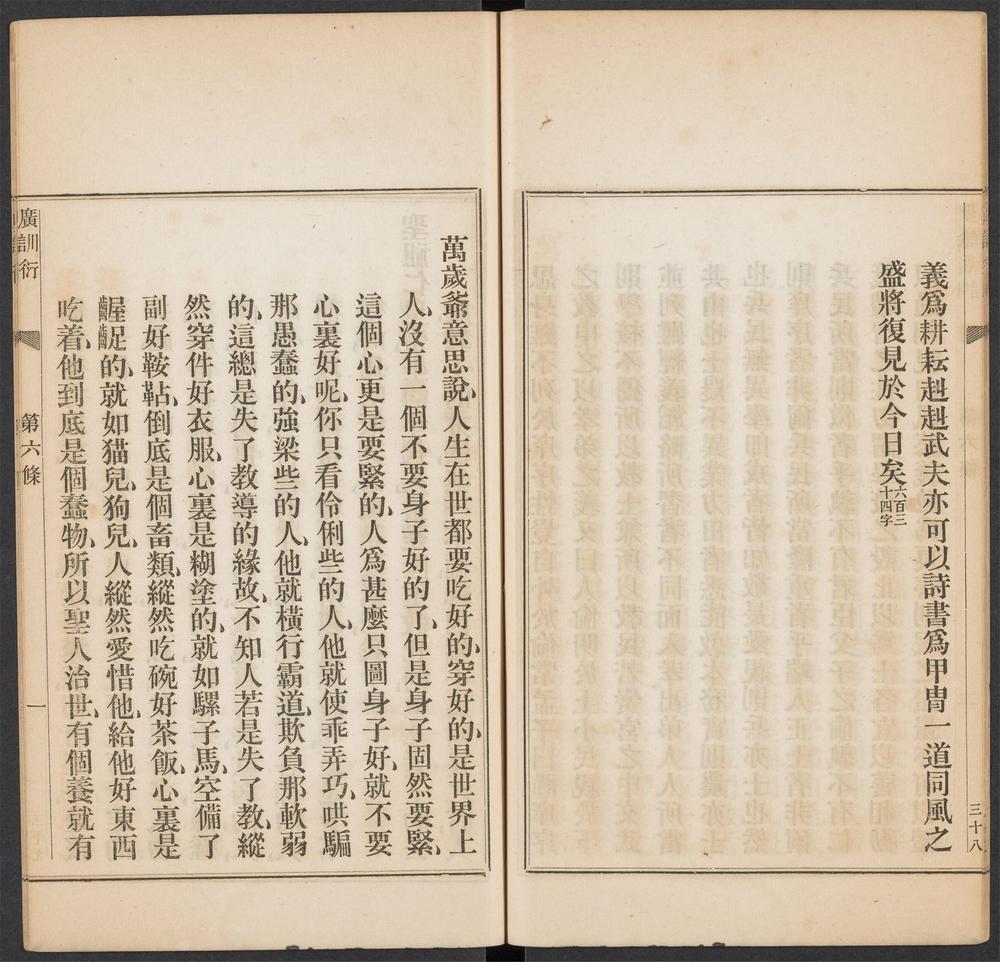 義爲耕耘赳赳武夫亦可以詩書爲甲冑一道同風之
盛將復見於今日矣六百三十四字
三十八
萬歲爺意思說、人生在世都要吃好的、穿好的、是世界上
人、沒有一個不要身子好的了、但是身子固然要緊、
這個心更是要緊的、人爲甚麼只圖身子好、就不要
心裏好呢、你只看伶俐些的人、他就使乖弄巧、哄騙
那愚蠢的、強梁些的人、他就橫行霸道、欺負那軟弱
的、這總是失了教導的緣故、不知人若是失了教、縱
然穿件好衣服、心裏是糊塗的、就如騾子馬、空備了
副好鞍鞊、倒底是個畜類、縱然吃碗好茶飯、心裏是
齷齪的、就如猫兒、狗兒、人縱然愛惜他、給他好東西
吃着、他到底是個蠢物、所以聖人治世、有個養就有
廣訓衍
第六條
一